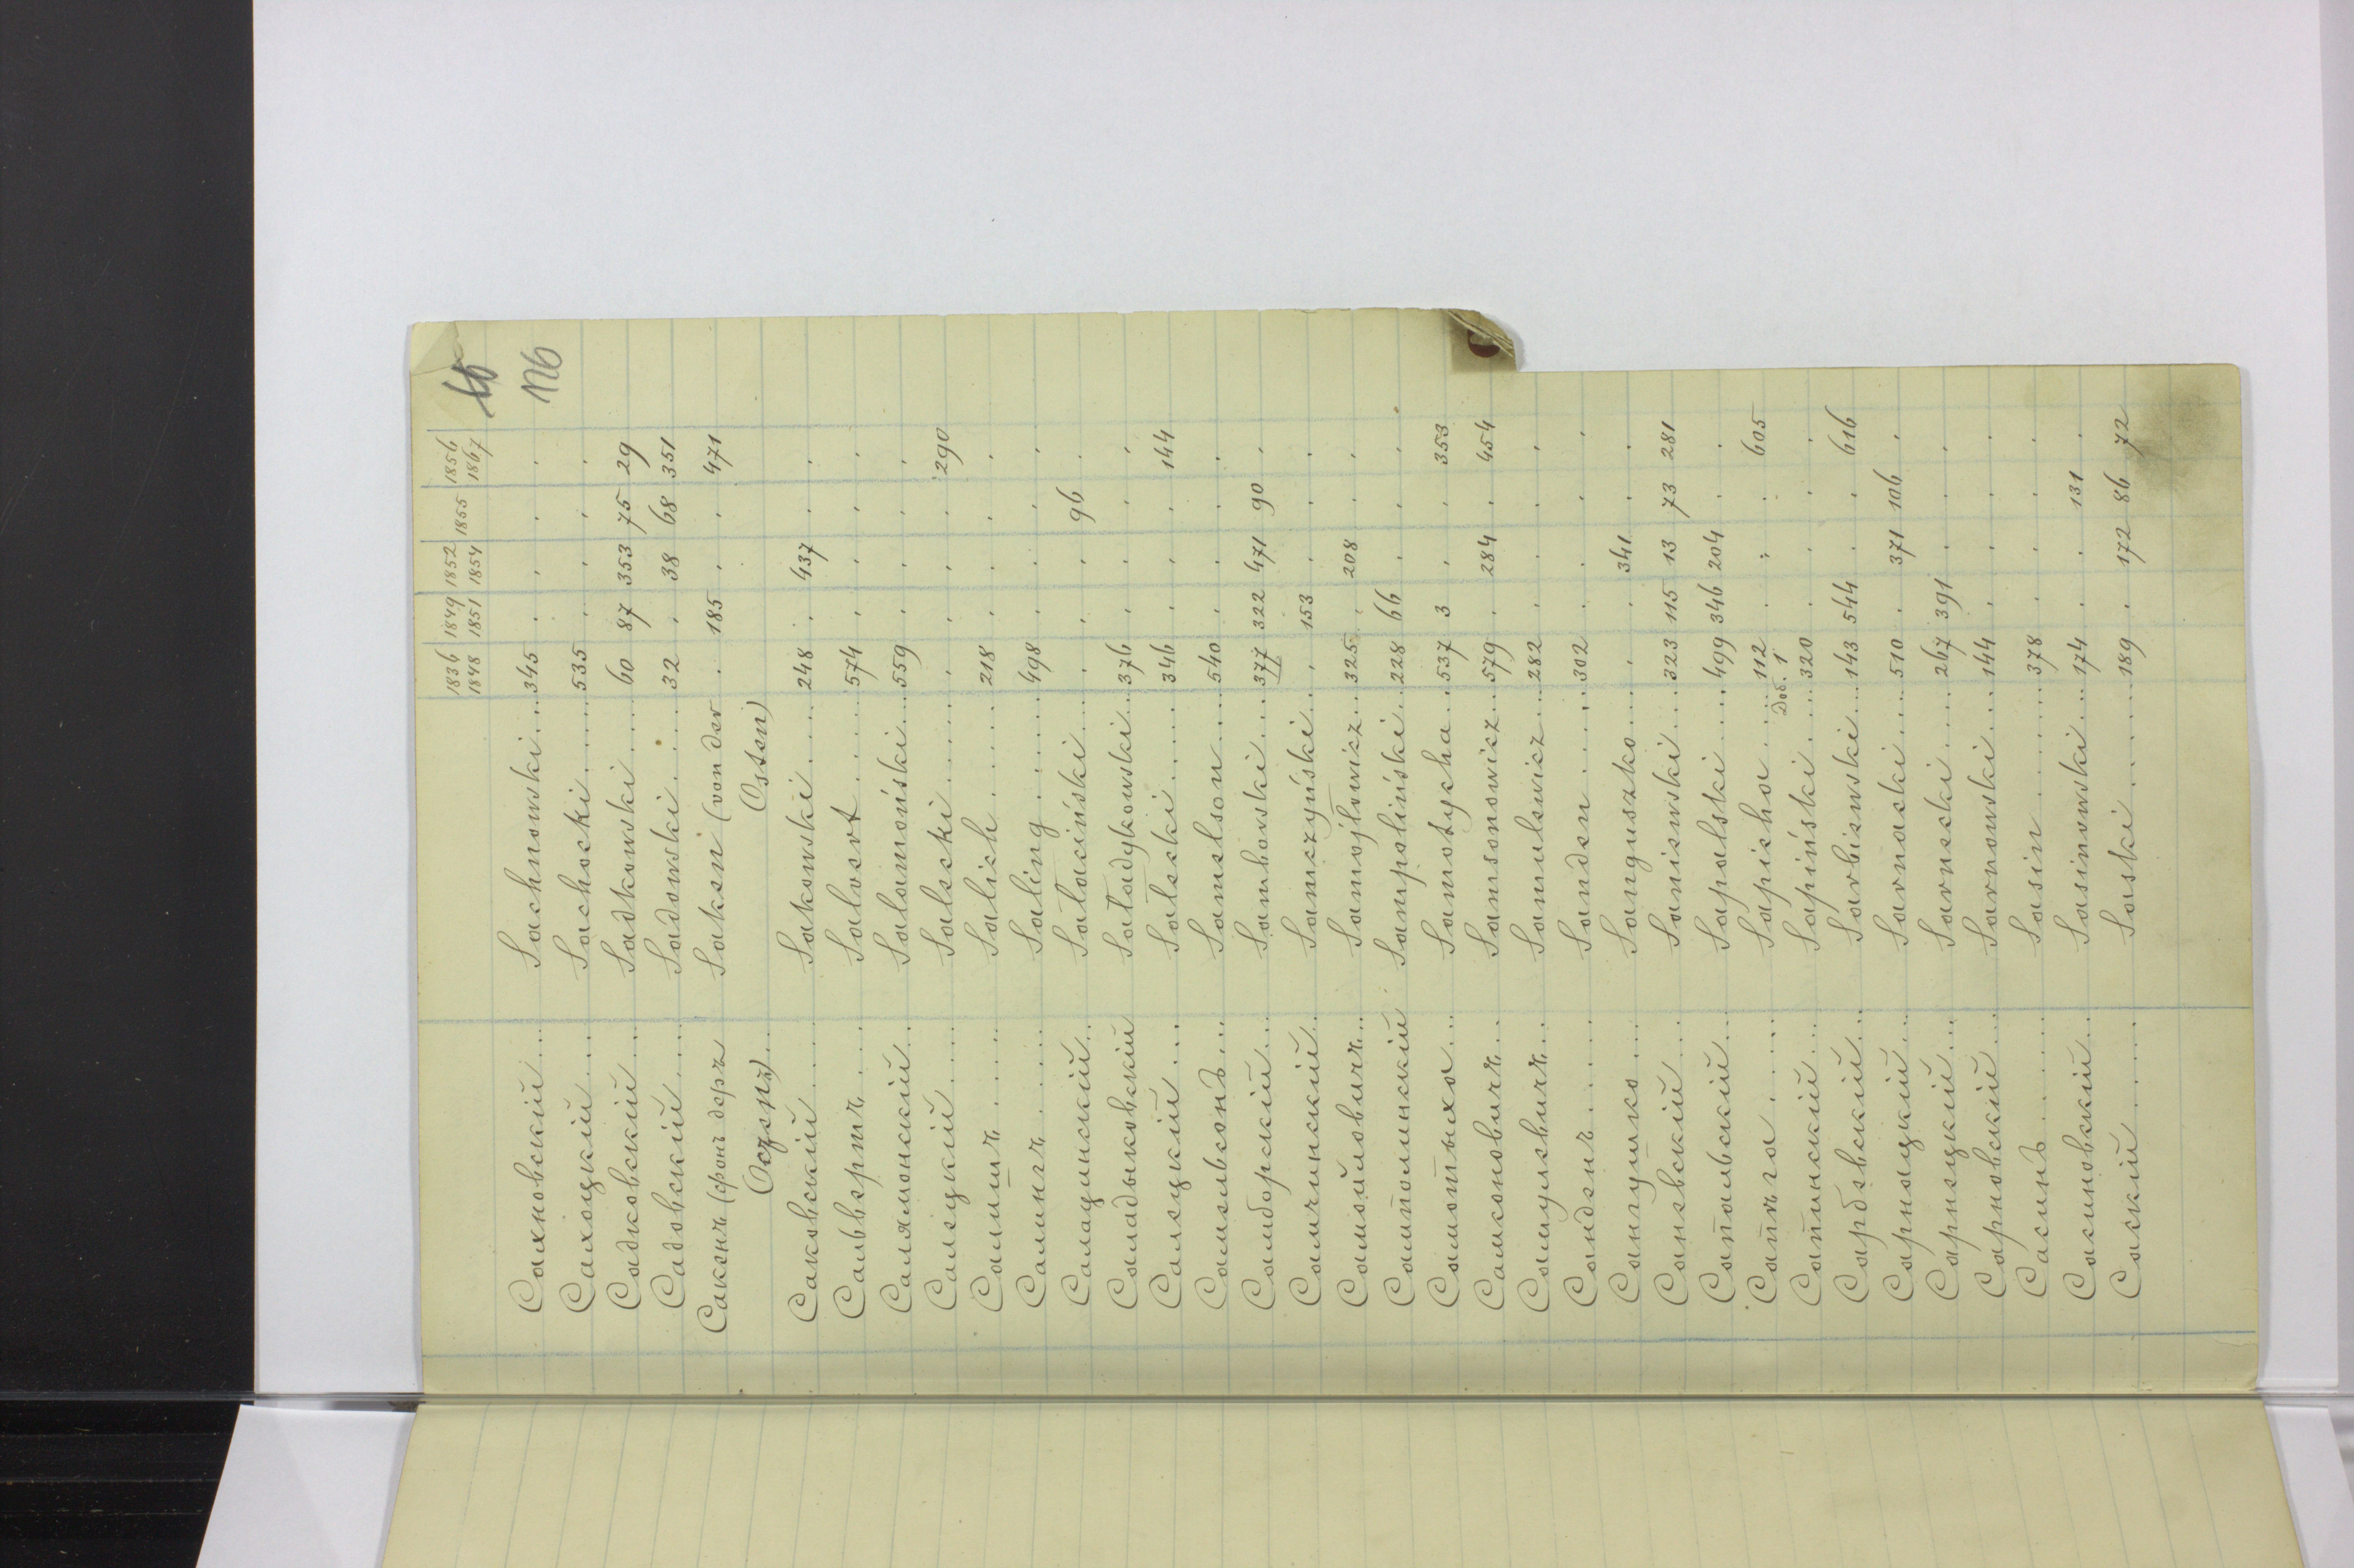 176
1836 1849 1852 1855 1856
1848 1851 1854 1867
Сахновскій... Sachnowski... 345 . . . .
Сахоцкій.... Sachocki..... 535 . . . .
Садковскій... Sadkowski.... 60 87 353 75 29
Садовскій.... Sadowski.... 32 . 38 68 351
Сакенъ (фонъ деръ Saken (von der . 185 . . 471
Остенъ)... Osten)
Саковскій.... Sakowski.... 248 . 437 . .
Сальвертъ.... Salvert..... 574 . . . .
Салямонскій... Salamoński... 559 . . . .
Салецкій.... Salecki..... . . . . 290
Салишъ..... Salich..... 218 . . . .
Салингъ..... Saling..... 498 . . . .
Салацинскій.. Sałaciński... . . . 96 .
Саладыковскій Sаładykowski... 376 . . . .
Салецкій.... Sałecki..... 346 . . . 144
Самельсонъ... Samelson.... 540 . . . .
Самборскій... Samborski.... 377 322 471 90 .
Самчинскій.. Samczyński... . 153 . . .
Самойловичъ... Samojłowicz... 325 . 208 . .
Самполинскій Sampoliński.. 228 66 . . .
Самотыха... Samotycha... 537 3 . . 353
Самсоновичъ... Samsonowicz.. 579 . 284 . 454
Самулевичъ... Samulewicz... 282 . . . .
Санденъ..... Sanden..... 302 . . . .
Сангушко.... Sanguszko.... . . 341 . .
Саневскій... Saniewski.... 323 115 13 73 281
Сапальскій... Sapalski.... 499 346 204 . .
Сапѣга..... Sapieha.... 112 . " . 605
Доб. 1
Сапинскій... Sapiński.... 320 . . . .
Сарбевскій... Sarbiewski... 143 544 . . 616
Сарнацкій... Sarnacki.... 510 . 371 106 .
Сарнецкій... Sarnecki.... 267 391 . . .
Сарновскій... Sarnowski... 144 . . . .
Сасинъ..... Sasin...... 378 . . . .
Сасиновскій.. Sasinowski... 174 . . 131 .
Саскій..... Saski...... 189 . 172 86 72